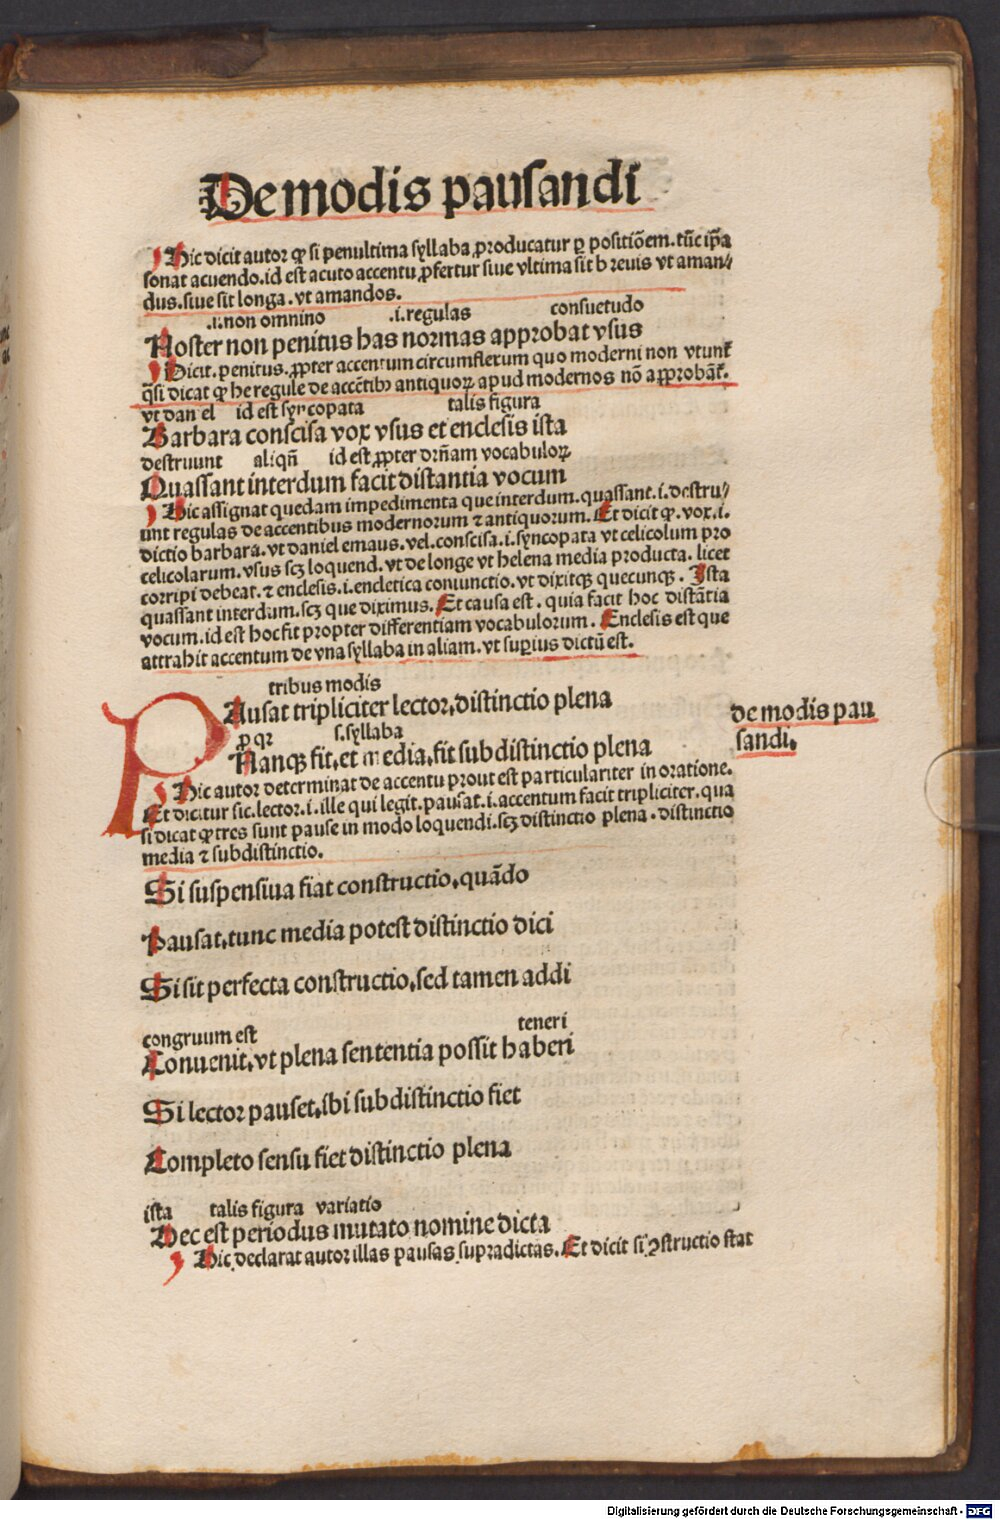 De modis pausandi
Hic dicit autor ꝙ si penultima syllaba ꝓducatur ꝑ positiõem. tũc ip̃a
sonat acuendo. id est acuto accentu ꝓfertur siue vltima sit breuis vt aman⸗
dus. siue sit longa. vt amandos.
.i. non omnino .i. regulas consuetudo
Noster non penitus has normas approbat vsus
Dicit. penitus. ꝓpter accentum circumflexum quo moderni non vtunt᷑
q̃si dicat ꝙ he regule de accẽtibꝫ antiquoꝝ apud modernos nõ approbãt᷑.
vt dan el id est syncopata talis figura
Barbara conscisa vox vsus et enclesis ista
destruunt aliqñ id est ꝓpter drñam vocabuloꝝ
Quassant interdum facit distantia vocum
Hic assignat quedam impedimenta que interdum. quassant. i. destru⸗
unt regulas de accentibus modernorum ⁊ antiquorum. Et dicit ꝙ. vox. i.
dictio barbara. vt daniel emaus. vel. conscisa. i. syncopata vt celicolum pro
celicolarum. vsus scꝫ loquend. vt de longe vt helena media producta. licet
corripi debeat. ⁊ enclesis. i. encletica coniunctio. vt dixitqꝫ quecunqꝫ. Ista
quassant interdum. scꝫ que diximus. Et causa est. quia facit hoc distãtia
vocum. id est hoc fit propter differentiam vocabulorum. Enclesis est que
attrahit accentum de vna syllaba in aliam. vt suꝑius dictũ est.
tribus modis
PAusat tripliciter lector, distinctio plena
de modis pau
sandi.
ꝑ qꝛ s. syllaba
Nanqꝫ fit, et media, fit subdistinctio plena
Hic autor determinat de accentu prout est particulariter in oratione.
Et dicitur sic. lector. i. ille qui legit. pausat. i. accentum facit tripliciter. qua
si dicat ꝙ tres sunt pause in modo loquendi. scꝫ distinctio plena. distinctio
media ⁊ subdistinctio.
Si suspensiua fiat constructio, quãdo
Pausat, tunc media potest distinctio dici
Si sit perfecta constructio, sed tamen addi
congruum est teneri
Conuenit, vt plena sententia possit haberi
Si lector pauset, ibi subdistinctio fiet
Completo sensu fiet distinctio plena
ista talis figura variatio
Hec est periodus mutato nomine dicta
Hic declarat autor illas pausas supradictas. Et dicit si ꝯstructio stat
Digitalisierung gefördert durch die Deutsche Forschungsgemeinschaft - DFG